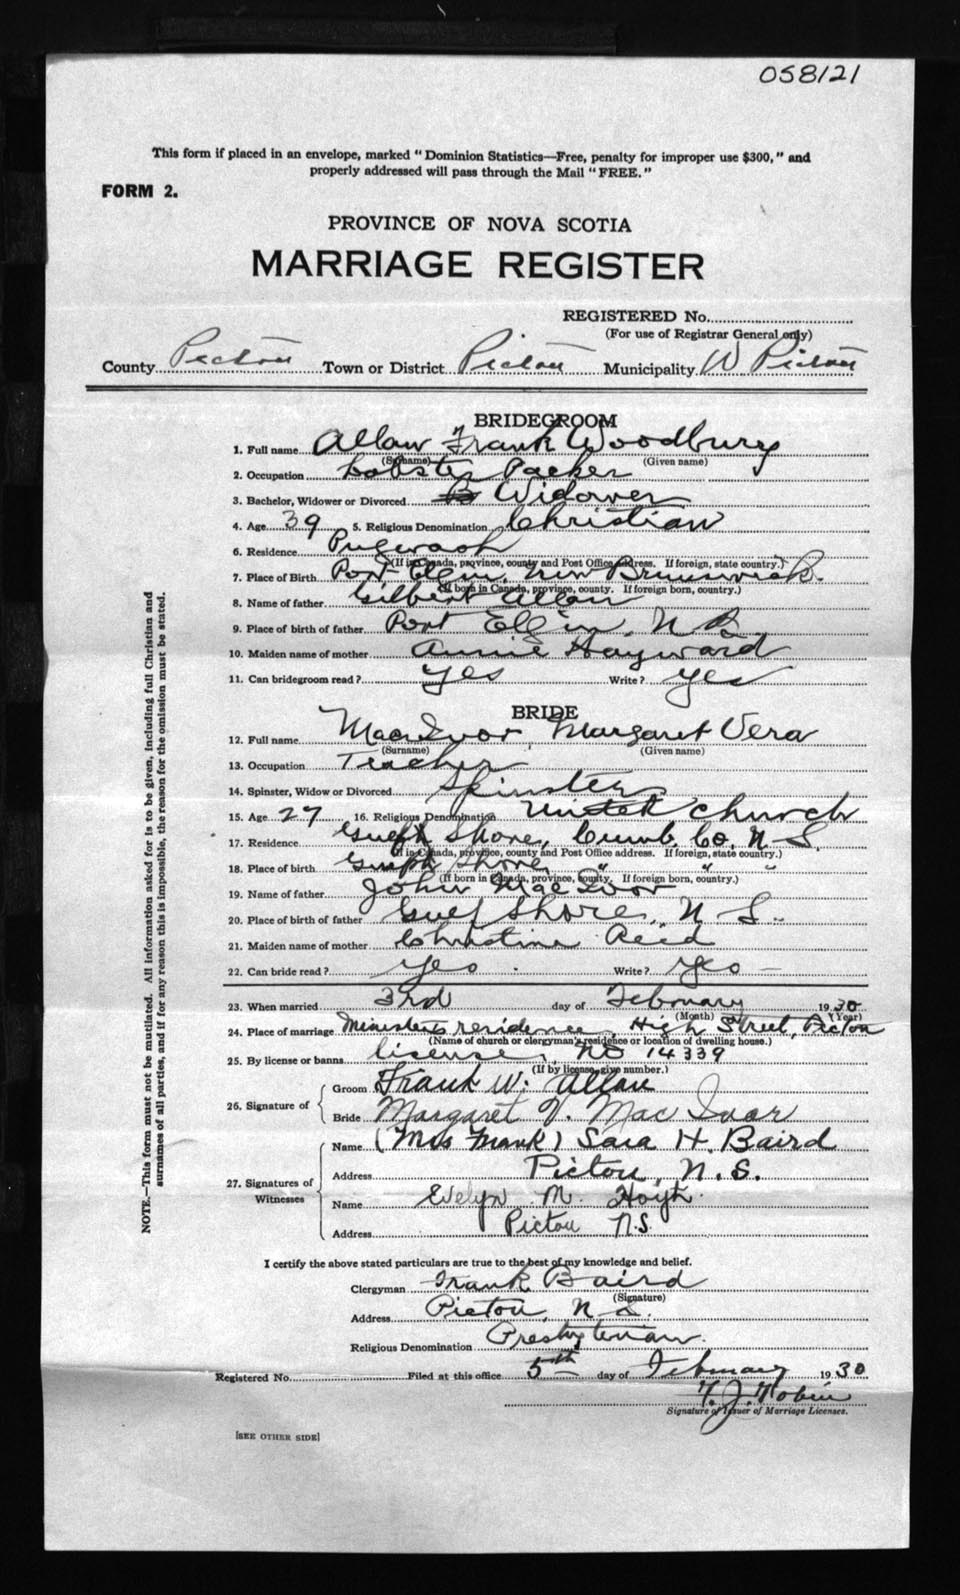 058121
This form if placed in an envelope, marked "Dominion Statistics—Free, penalty for improper use $300," and
properly addressed will pass through the Mail "FREE."
FORM 2.
PROVINCE OF NOVA SCOTIA
MARRIAGE REGISTER
REGISTERED No.
(For use of Registrar General only)
County Pictou Town or District Pictou Municipality W Pictou
BRIDEGROOM
1. Full name Allan Frank Woodbury
(Surname) (Given name)
2. Occupation Lobster Packer
3. Bachelor, Widower or Divorced B Widower
4. Age 39 5. Religious Denomination Christian
6. Residence Pugwash
(If in Canada, province, county and Post Office address. If foreign, state country.)
7. Place of Birth Port Elgin, New Brunswick.
(If born in Canada, province, county. If foreign born, country.)
8. Name of father Gilbert Allan
9. Place of birth of father Port Elgin, N B.
10. Maiden name of mother Annie Hayward
11. Can bridegroom read? Yes Write? Yes
BRIDE
12. Full name MacIvor, Margaret Vera
(Surname) (Given name)
13. Occupation Teacher
14. Spinster, Widow or Divorced Spinster
15. Age 27 16. Religious Denomination United Church
17. Residence Gulf Shore, Cumb. Co. N. S.
(If in Canada, province, county and Post Office address. If foreign, state country.)
18. Place of birth Gulf Shore, " "
(If born in Canada, province, county. If foreign born, country.)
19. Name of father John MacIvor
20. Place of birth of father Gulf Shore, N. S.
21. Maiden name of mother Christine Reid
22. Can bride read? Yes Write? Yes
23. When married 3rd day of February 1930
(Month) (Year)
24. Place of marriage Minister's residence, High Street, Pictou
(Name of church or clergyman's residence or location of dwelling house.)
25. By license or banns license, No 14339
(If by license, give number.)
26. Signature of Groom Frank W. Allan
Bride Margaret V. MacIvor
27. Signatures of Witnesses Name (Mrs Frank) Sara H. Baird
Address Pictou, N.S.
Name Evelyn M. Hoyt.
Address Pictou N.S.
I certify the above stated particulars are true to the best of my knowledge and belief.
Clergyman Frank Baird
(Signature)
Address Pictou, N S.
Religious Denomination Presbyterian.
Registered No. Filed at this office 5th day of February 1930
Signature of Issuer of Marriage Licenses.
[SEE OTHER SIDE]
NOTE.—This form must not be mutilated. All information asked for is to be given, including full Christian and
surnames of all parties, and if for any reason this is impossible, the reason for the omission must be stated.